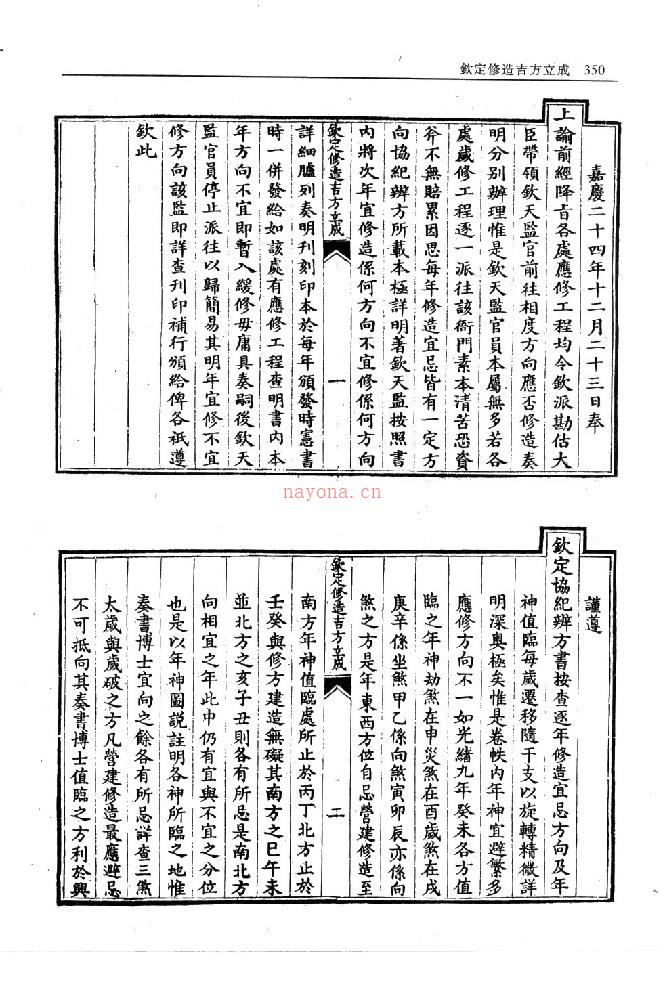 欽定修造吉方立成 350
嘉慶二十四年十二月二十三日奉
上諭前經降旨各處應修工程均令欽派勘估大
臣帶領欽天監官前往相度方向應否修造奏
明分別辦理惟是欽天監官員本屬無多若各
處歲修工程逐一派往該衙門素本清苦恐資
斧不無賠累因思每年修造宜忌皆有一定方
向協紀辨方所載本極詳明著欽天監按照書
內將次年宜修造係何方向不宜修係何方向
欽定修造吉方立成 一
詳細臚列奏明刊刻印本於每年頒發時憲書
時一併發給如該處有應修工程查明書內本
年方向不宜即暫入緩修毋庸具奏嗣後欽天
監官員停止派往以歸簡易其明年宜修不宜
修方向該監即詳查刊印補行頒給俾各祗遵
欽此
nayona.cn
謹遵
欽定協紀辨方書按查逐年修造宜忌方向及年
神值臨每歲遷移隨干支以旋轉精微詳
明深奧極矣惟是卷帙內年神宜避繁多
應修方向不一如光緒九年癸未各方值
臨之年神劫煞在申災煞在酉歲煞在戌
庚辛係坐煞甲乙係向煞寅卯辰亦係向
煞之方是年東西方位自忌營建修造至
欽定修造吉方立成 二
南方年神值臨處所止於丙丁北方止於
壬癸與修方建造無礙其南方之巳午未
並北方之亥子丑則各有所忌是南北方
向相宜之年此中仍有宜與不宜之分位
也是以年神圖說註明各神所臨之地惟
奏書博士宜向之餘各有所忌詳查三煞
太歲與歲破之方凡營建修造最應避忌
不可抵向其奏書博士值臨之方利於興